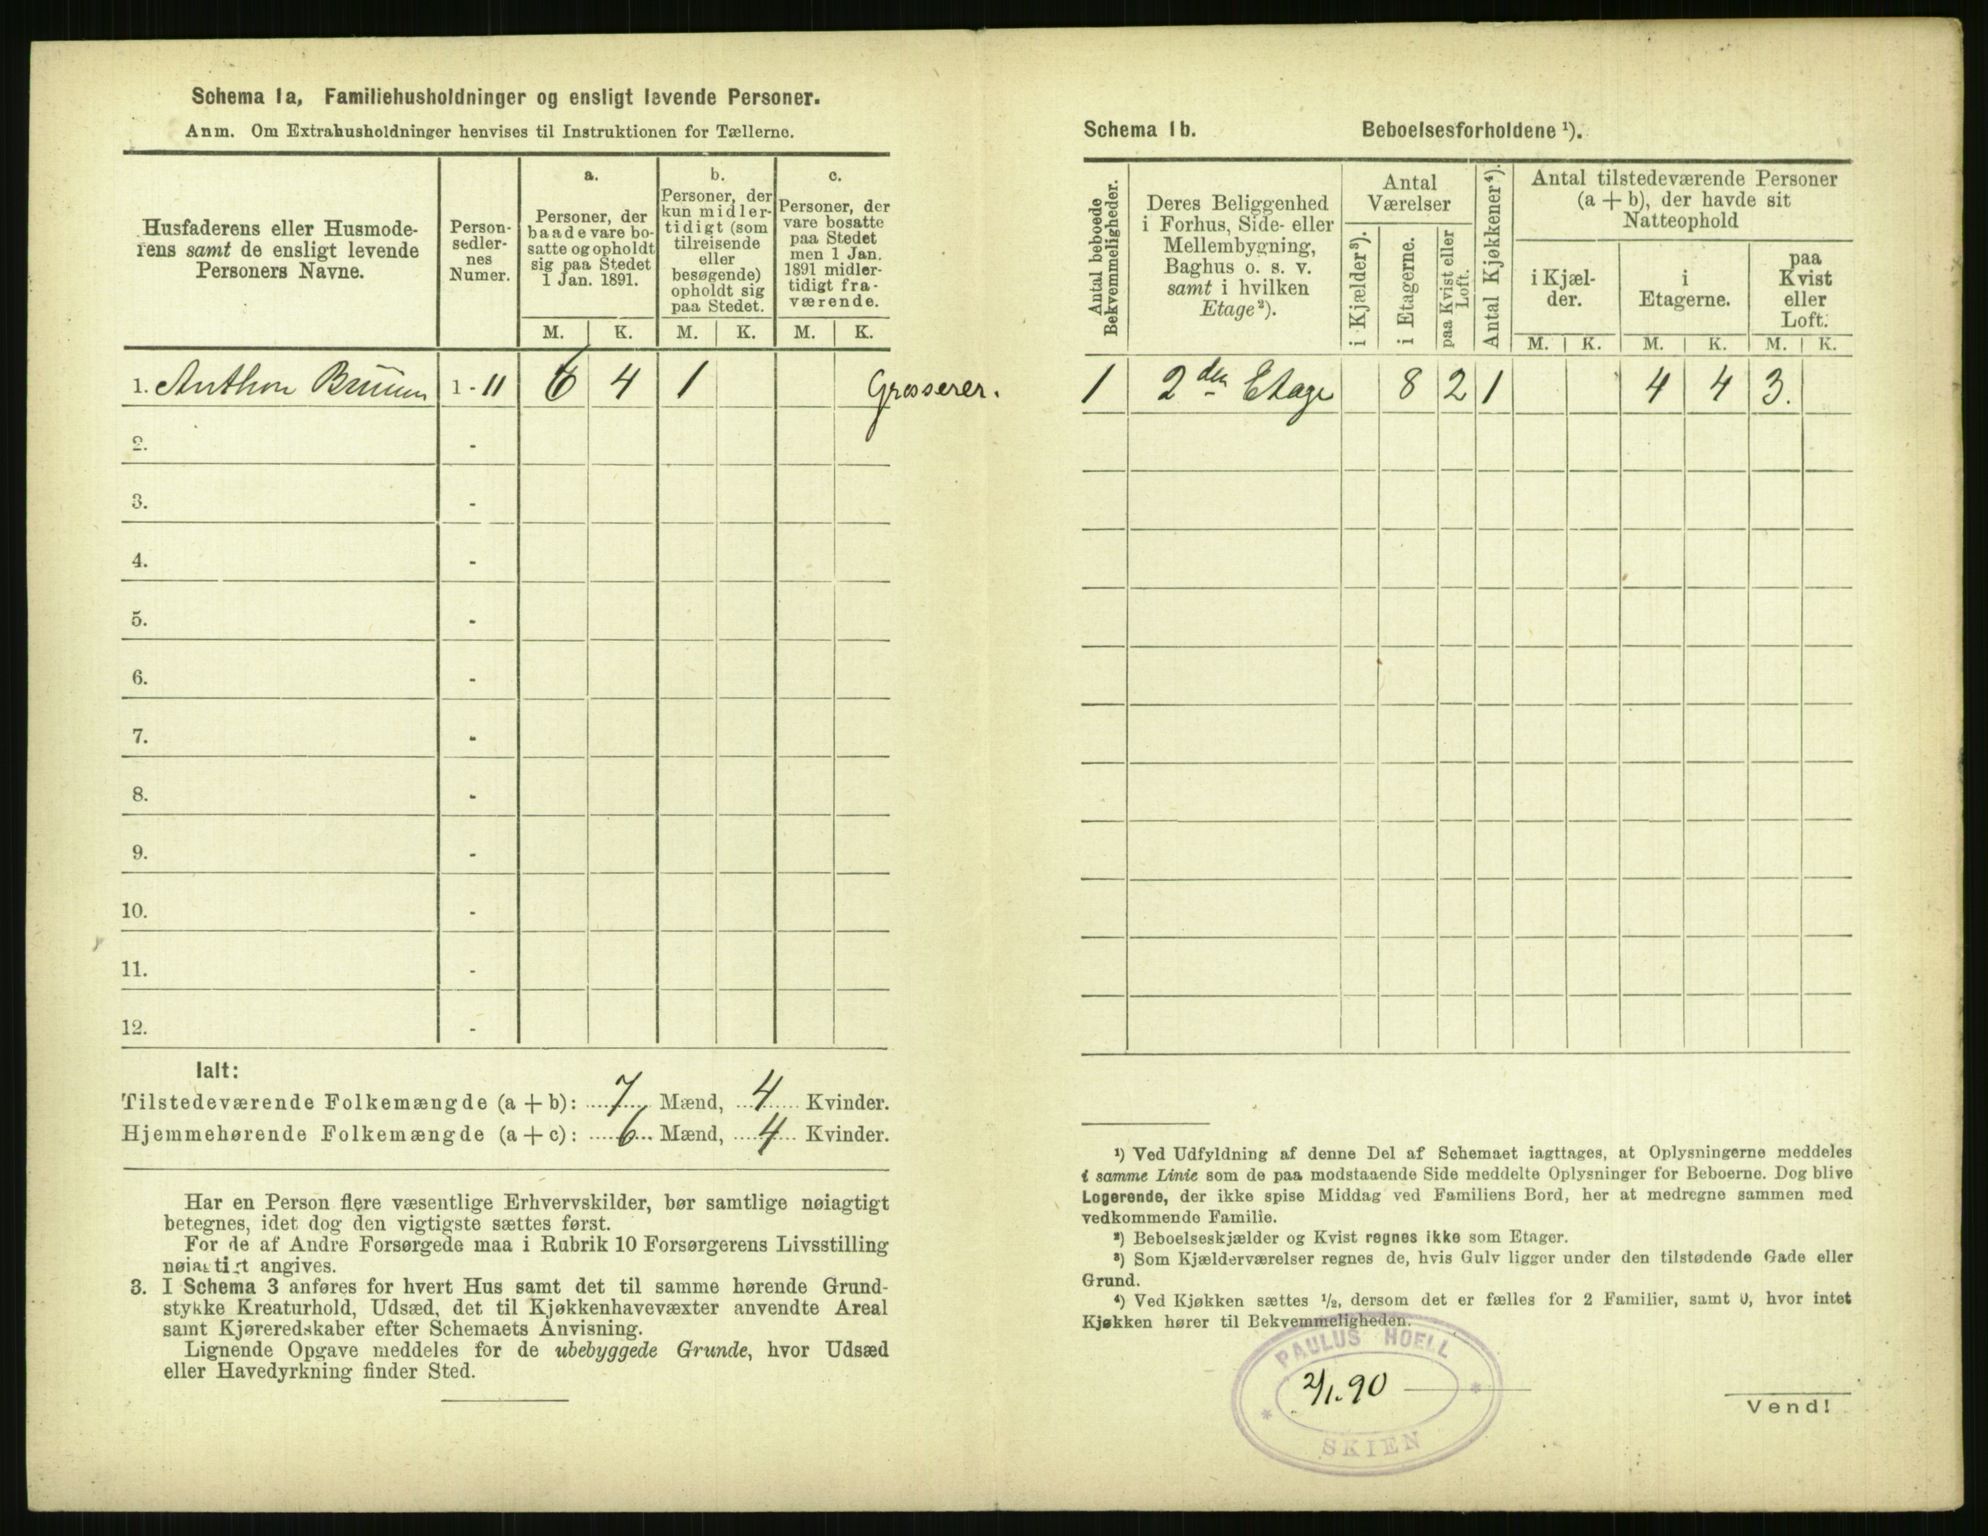 Schema 1a, Familiehusholdninger og ensligt levende Personer.
Anm. Om Extrahusholdninger henvises til Instruktionen for Tællerne.
Husfaderens eller Husmode-
rens samt de ensligt levende
Personers Navne.
Person-
sedler-
nes
Numer.
a.
Personer, der
baade vare bo-
satte og opholdt
sig paa Stedet
1 Jan. 1891.
b.
Personer, der
kun midler-
tidigt (som
tilreisende
eller
besøgende)
opholdt sig
paa Stedet.
c.
Personer, der
vare bosatte
paa Stedet
men 1 Jan.
1891 midler-
tidigt fra-
værende.
M. K. M. K. M. K.
1. Anthon Bruun 1 - 11 6 4 1 Grosserer.
2. -
3. -
4. -
5. -
6. -
7. -
8. -
9. -
10. -
11. -
12. -
Ialt:
Tilstedeværende Folkemængde (a + b): 7 Mænd, 4 Kvinder.
Hjemmehørende Folkemængde (a + c): 6 Mænd, 4 Kvinder.
Har en Person flere væsentlige Erhvervskilder, bør samtlige nøiagtigt
betegnes, idet dog den vigtigste sættes først.
For de af Andre Forsørgede maa i Rubrik 10 Forsørgerens Livsstilling
nøiagtigt angives.
3. I Schema 3 anføres for hvert Hus samt det til samme hørende Grund-
stykke Kreaturhold, Udsæd, det til Kjøkkenhavevæxter anvendte Areal
samt Kjøreredskaber efter Schemaets Anvisning.
Lignende Opgave meddeles for de ubebyggede Grunde, hvor Udsæd
eller Havedyrkning finder Sted.
Schema 1b. Beboelsesforholdene ¹).
Antal beboede
Bekvemmeligheder.
Deres Beliggenhed
i Forhus, Side- eller
Mellembygning,
Baghus o. s. v.
samt i hvilken
Etage²).
Antal
Værelser
i Kjælder³).
i Etagerne.
paa Kvist eller
Loft.
Antal Kjøkkener⁴).
Antal tilstedeværende Personer
(a + b), der havde sit
Natteophold
i Kjæl-
der.
i
Etagerne.
paa
Kvist
eller
Loft.
M. K. M. K. M. K.
1 2den Etage 8 2 1 4 4 3.
¹) Ved Udfyldning af denne Del af Schemaet iagttages, at Oplysningerne meddeles
i samme Linie som de paa modstaaende Side meddelte Oplysninger for Beboerne. Dog blive
Logerende, der ikke spise Middag ved Familiens Bord, her at medregne sammen med
vedkommende Familie.
²) Beboelseskjælder og Kvist regnes ikke som Etager.
³) Som Kjælderværelser regnes de, hvis Gulv ligger under den tilstødende Gade eller
Grund.
⁴) Ved Kjøkken sættes ½, dersom det er fælles for 2 Familier, samt 0, hvor intet
Kjøkken hører til Bekvemmeligheden.
PAULUS HOELL
2/1.90
SKIEN
Vend!